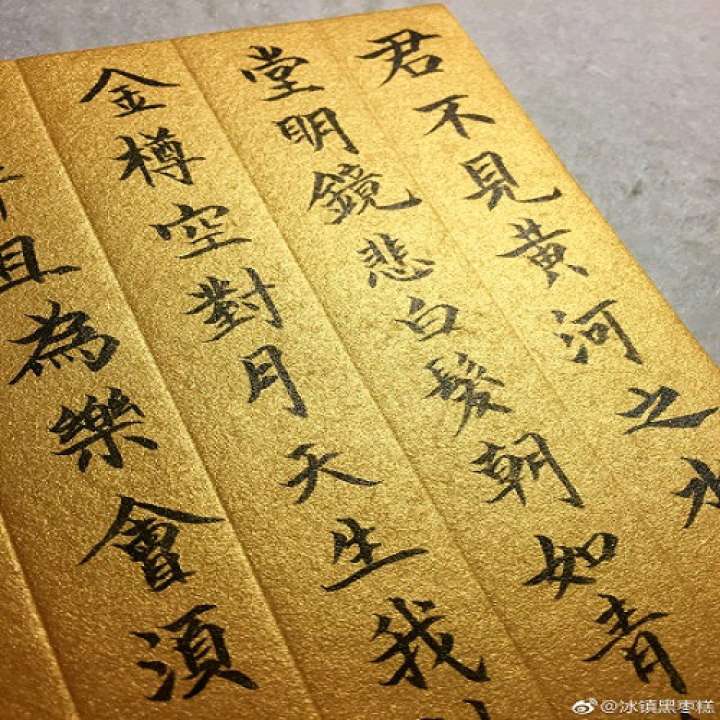 君不見黃河之水
堂明鏡悲白髮朝如青
金樽空對月天生我
羊且為樂會須
@冰镇黑枣糕